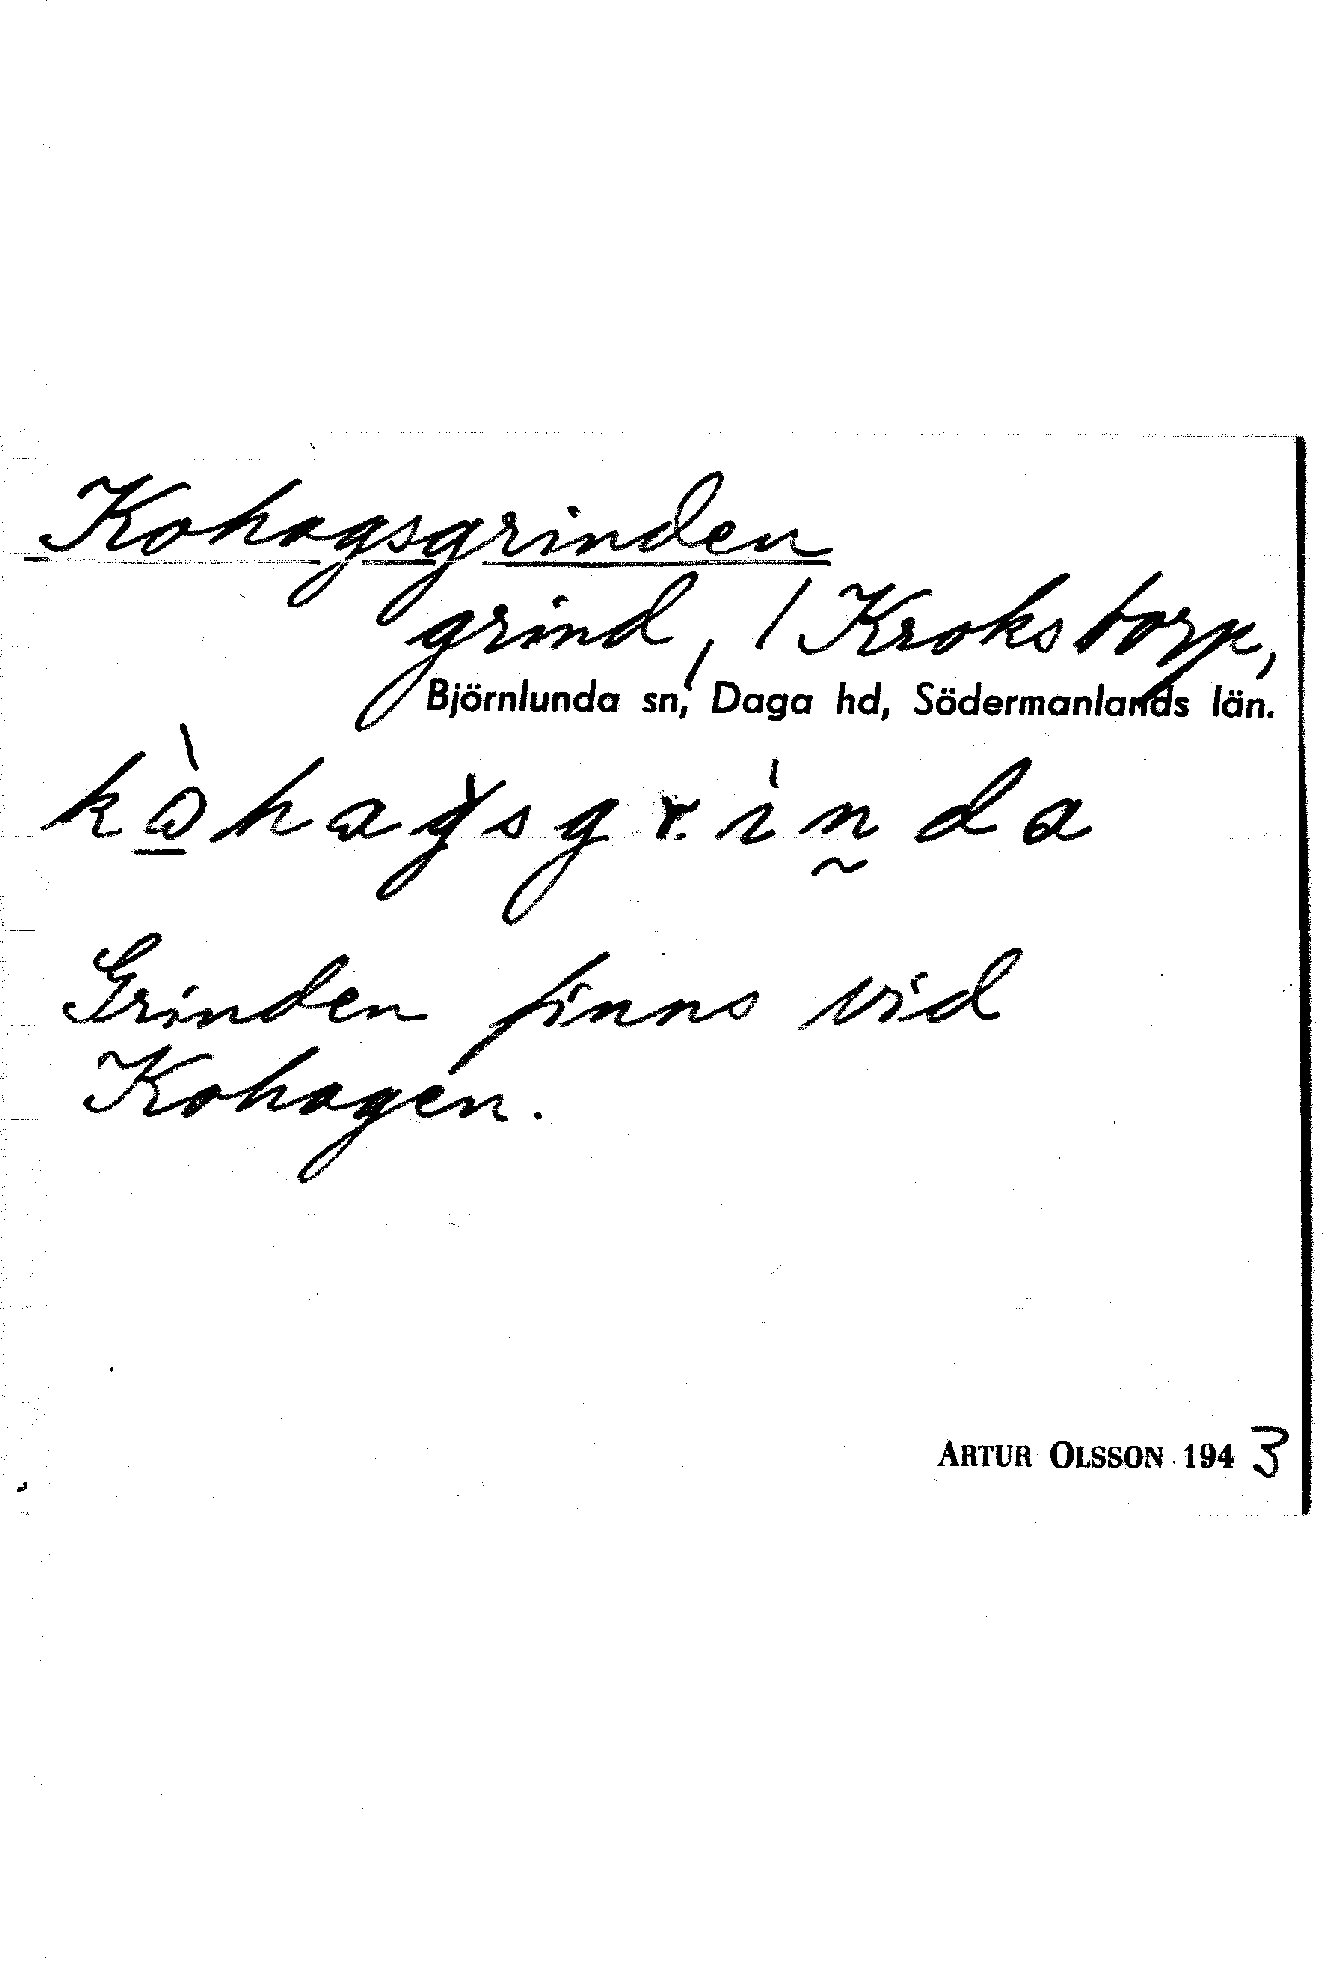 Kohagsgrinden
grind, / Krokstorp,
Björnlunda sn, Daga hd, Södermanlands län.
kὼhagsgrinda
Grinden finns vid
Kohagen.
ARTUR OLSSON 1943